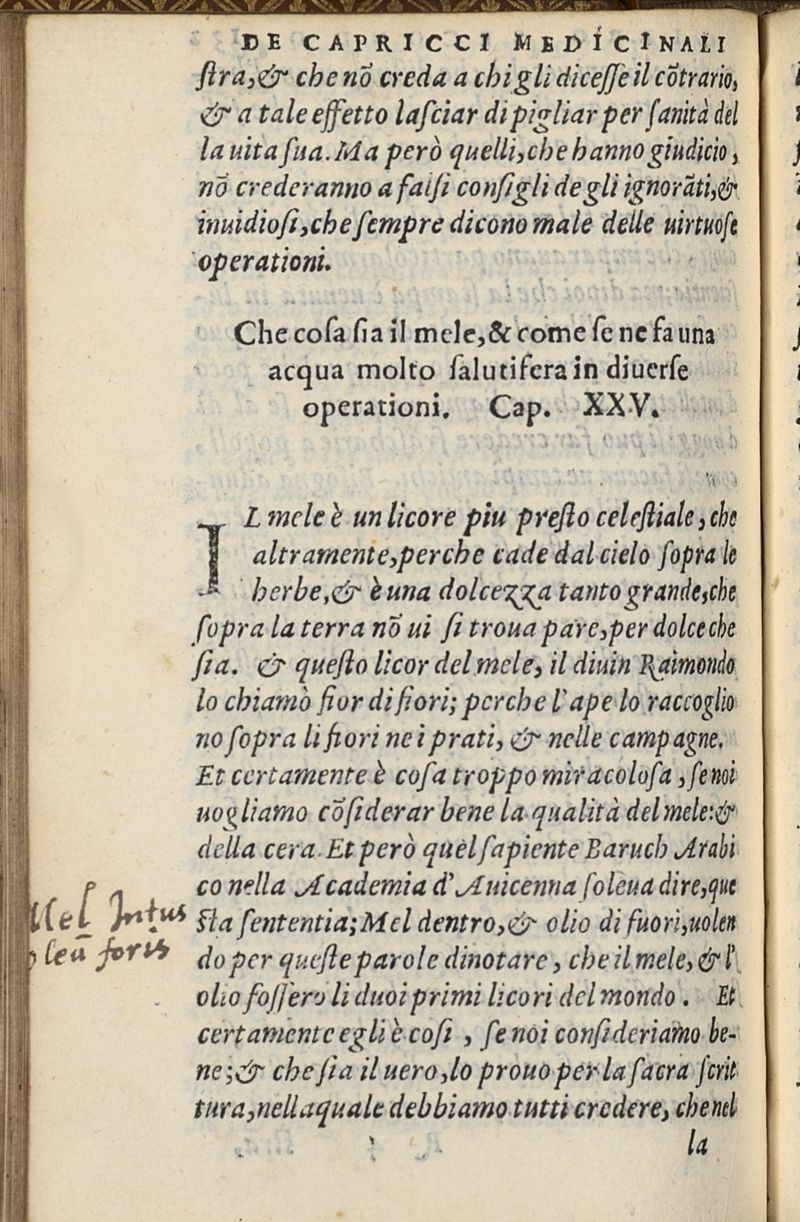 DE CAPRICCI MEDICINALI
ſtra,& che nõ creda a chi gli diceſſe il cõtrario,
& a tale effetto laſciar di pigliar per ſanità del
la uita ſua. Ma però quelli, che hanno giudicio,
nõ crederanno a falſi conſigli de gli ignorãti,&
inuidioſi, che ſempre dicono male delle uirtuoſe
operationi.
Che coſa ſia il mele, & come ſe ne fa una
acqua molto ſalutifera in diuerſe
operationi. Cap. XXV.
IL mele è un licore piu preſto celeſtiale, che
altramente, perche cade dal cielo ſopra le
herbe, & è una dolcezza tanto grande, che
ſopra la terra nõ ui ſi troua pare, per dolce che
ſia. & queſto licor del mele, il diuin Raimondo
lo chiamò fior di fiori; perche l'ape lo raccoglio
no ſopra li fiori ne i prati, & nelle campagne.
Et certamente è coſa troppo miracoloſa, ſe noi
uogliamo cõſiderar bene la qualità del mele: &
della cera. Et però quel ſapiente Baruch Arabi
co nella Academia d'Auicenna ſoleua dire, que
Mel Intus
ſta ſententia; Mel dentro, & olio di fuori, uolen
oleũ foris
do per queſte parole dinotare, che il mele, & l'
olio foſſero li duoi primi licori del mondo. Et
certamente egli è coſi, ſe noi conſideriamo be-
ne; & che ſia il uero, lo prouo per la ſacra ſcrit
tura, nella quale debbiamo tutti credere, che nel
la